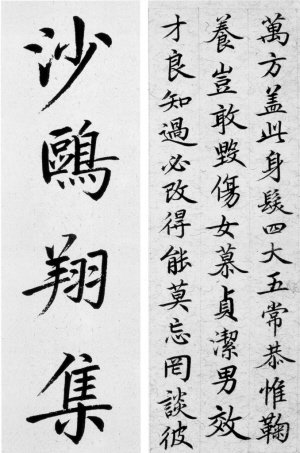 萬方盖此身髮四大五常恭惟鞠
養豈敢毀傷女慕貞潔男效
才良知過必改得能莫忘罔談彼
沙鷗翔集